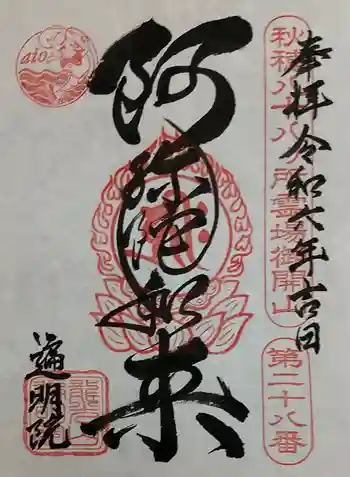 秋穂八十八ヶ所霊場御開山
第二十八番
奉拝 令和六年吉日
阿弥陀如来
遍明院
aio